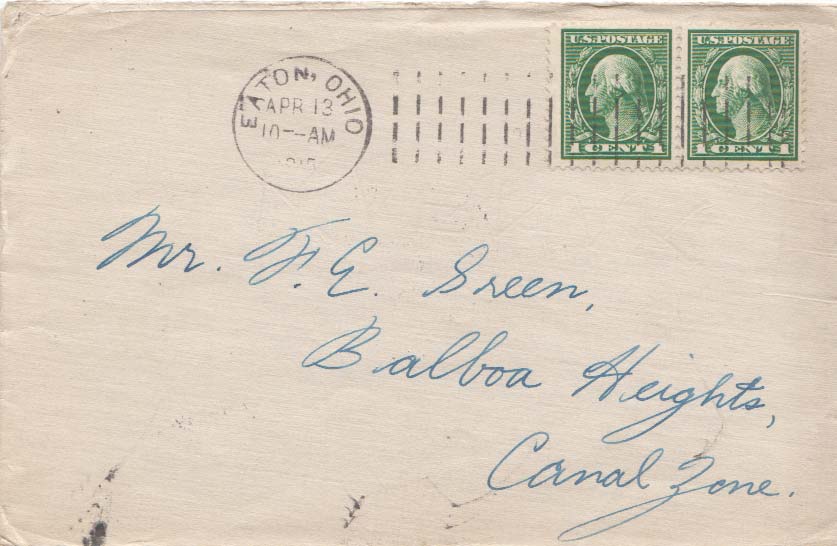 EATON, OHIO
APR 13
10--AM
1915
U.S. POSTAGE
1 CENT 1
U.S. POSTAGE
1 CENT 1
Mr. F. E. Green,
Balboa Heights,
Canal Zone.